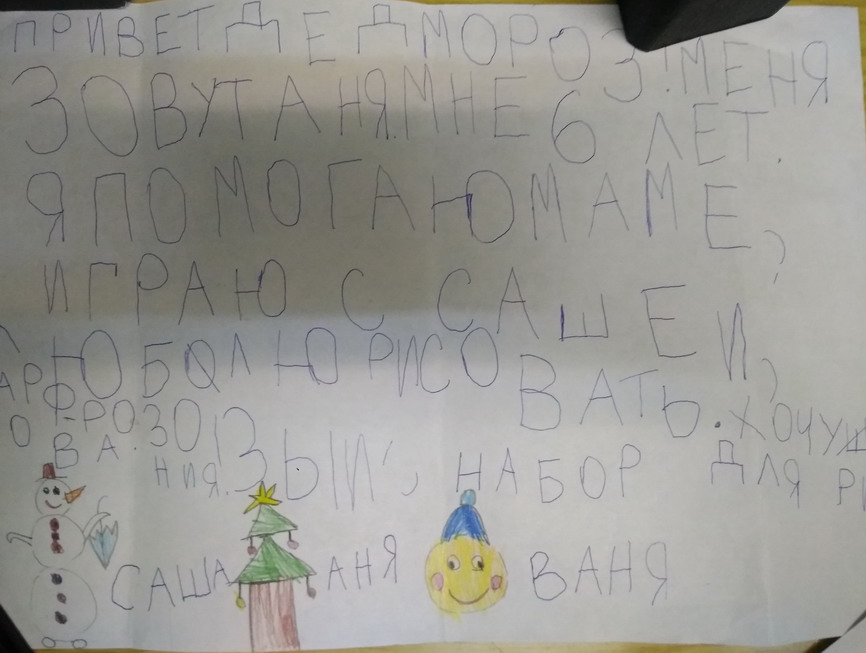 ПРИВЕТ ДЕД МОРОЗ! МЕНЯ
ЗОВУТ АНЯ. МНЕ 6 ЛЕТ.
Я ПОМОГАЮ МАМЕ,
ИГРАЮ С САШЕЙ,
ЛЮБЛЮ РИСО
ВАТЬ. ХОЧУ Ш
АР
О
Ф
РОЗО
ВА
НИЯ.
ЗЫЙ, НАБОР ДЛЯ РИ
САША АНЯ ВАНЯ